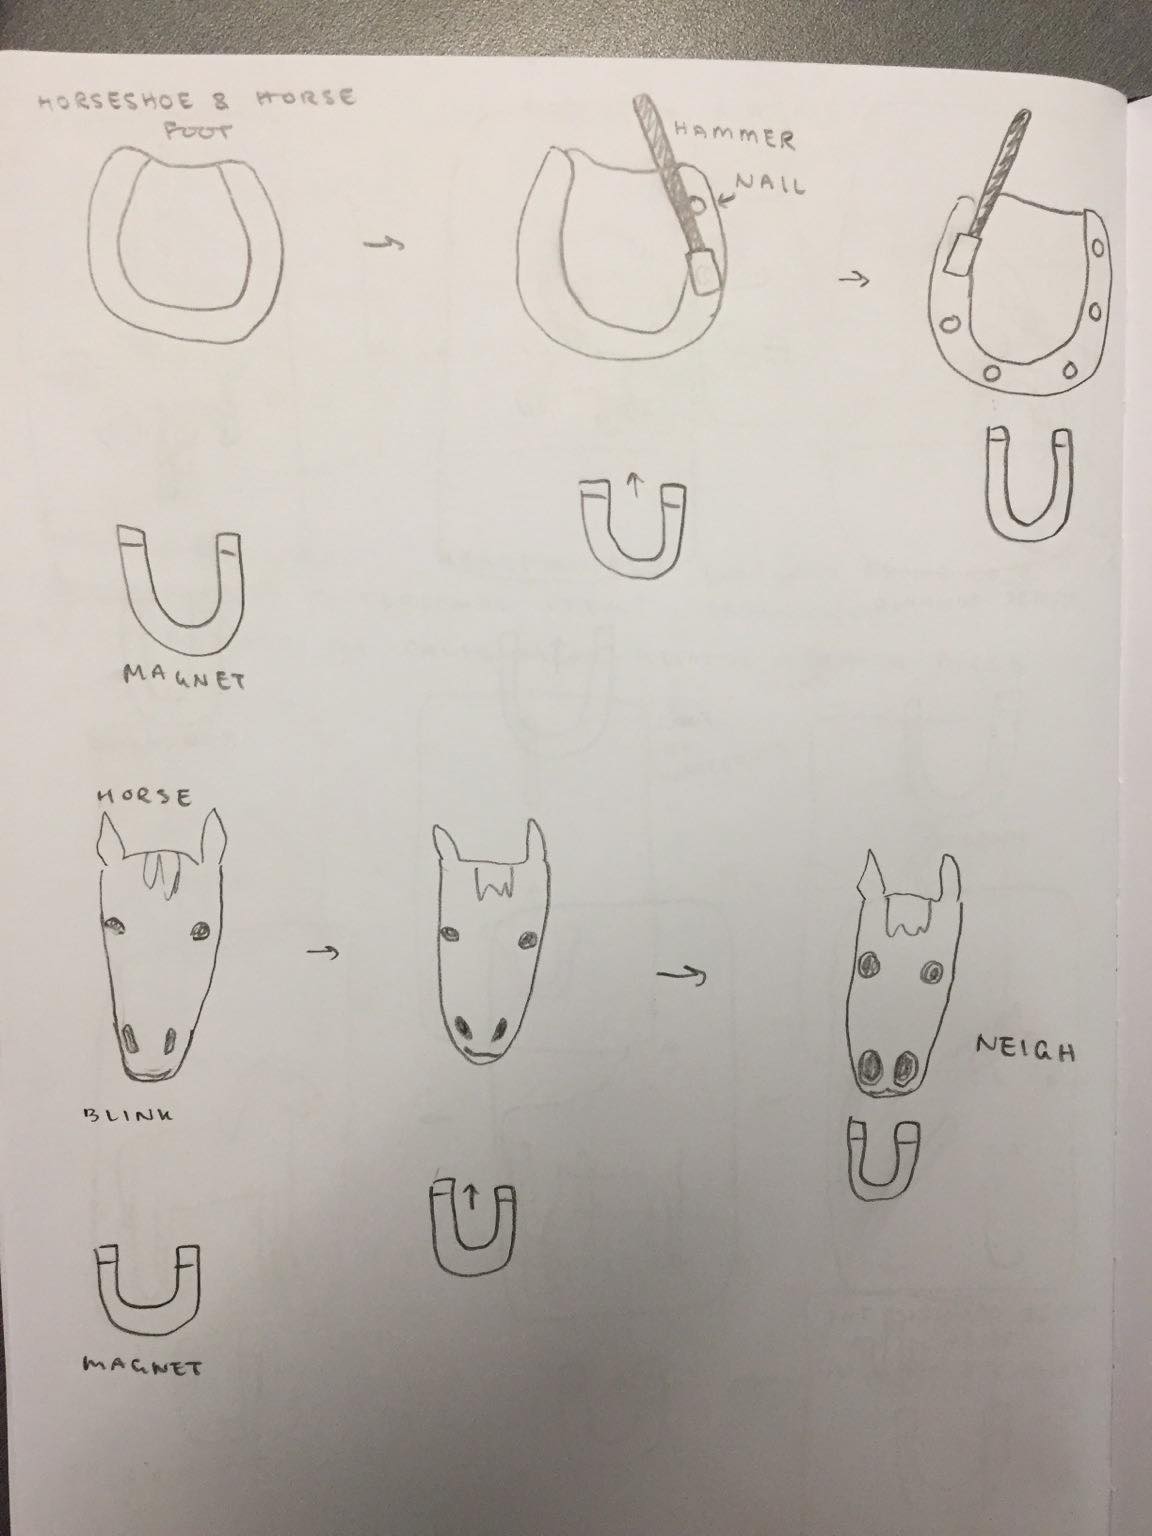 HORSESHOE & HORSE
FOOT
HAMMER
NAIL
MAGNET
HORSE
NEIGH
BLINK
MAGNET